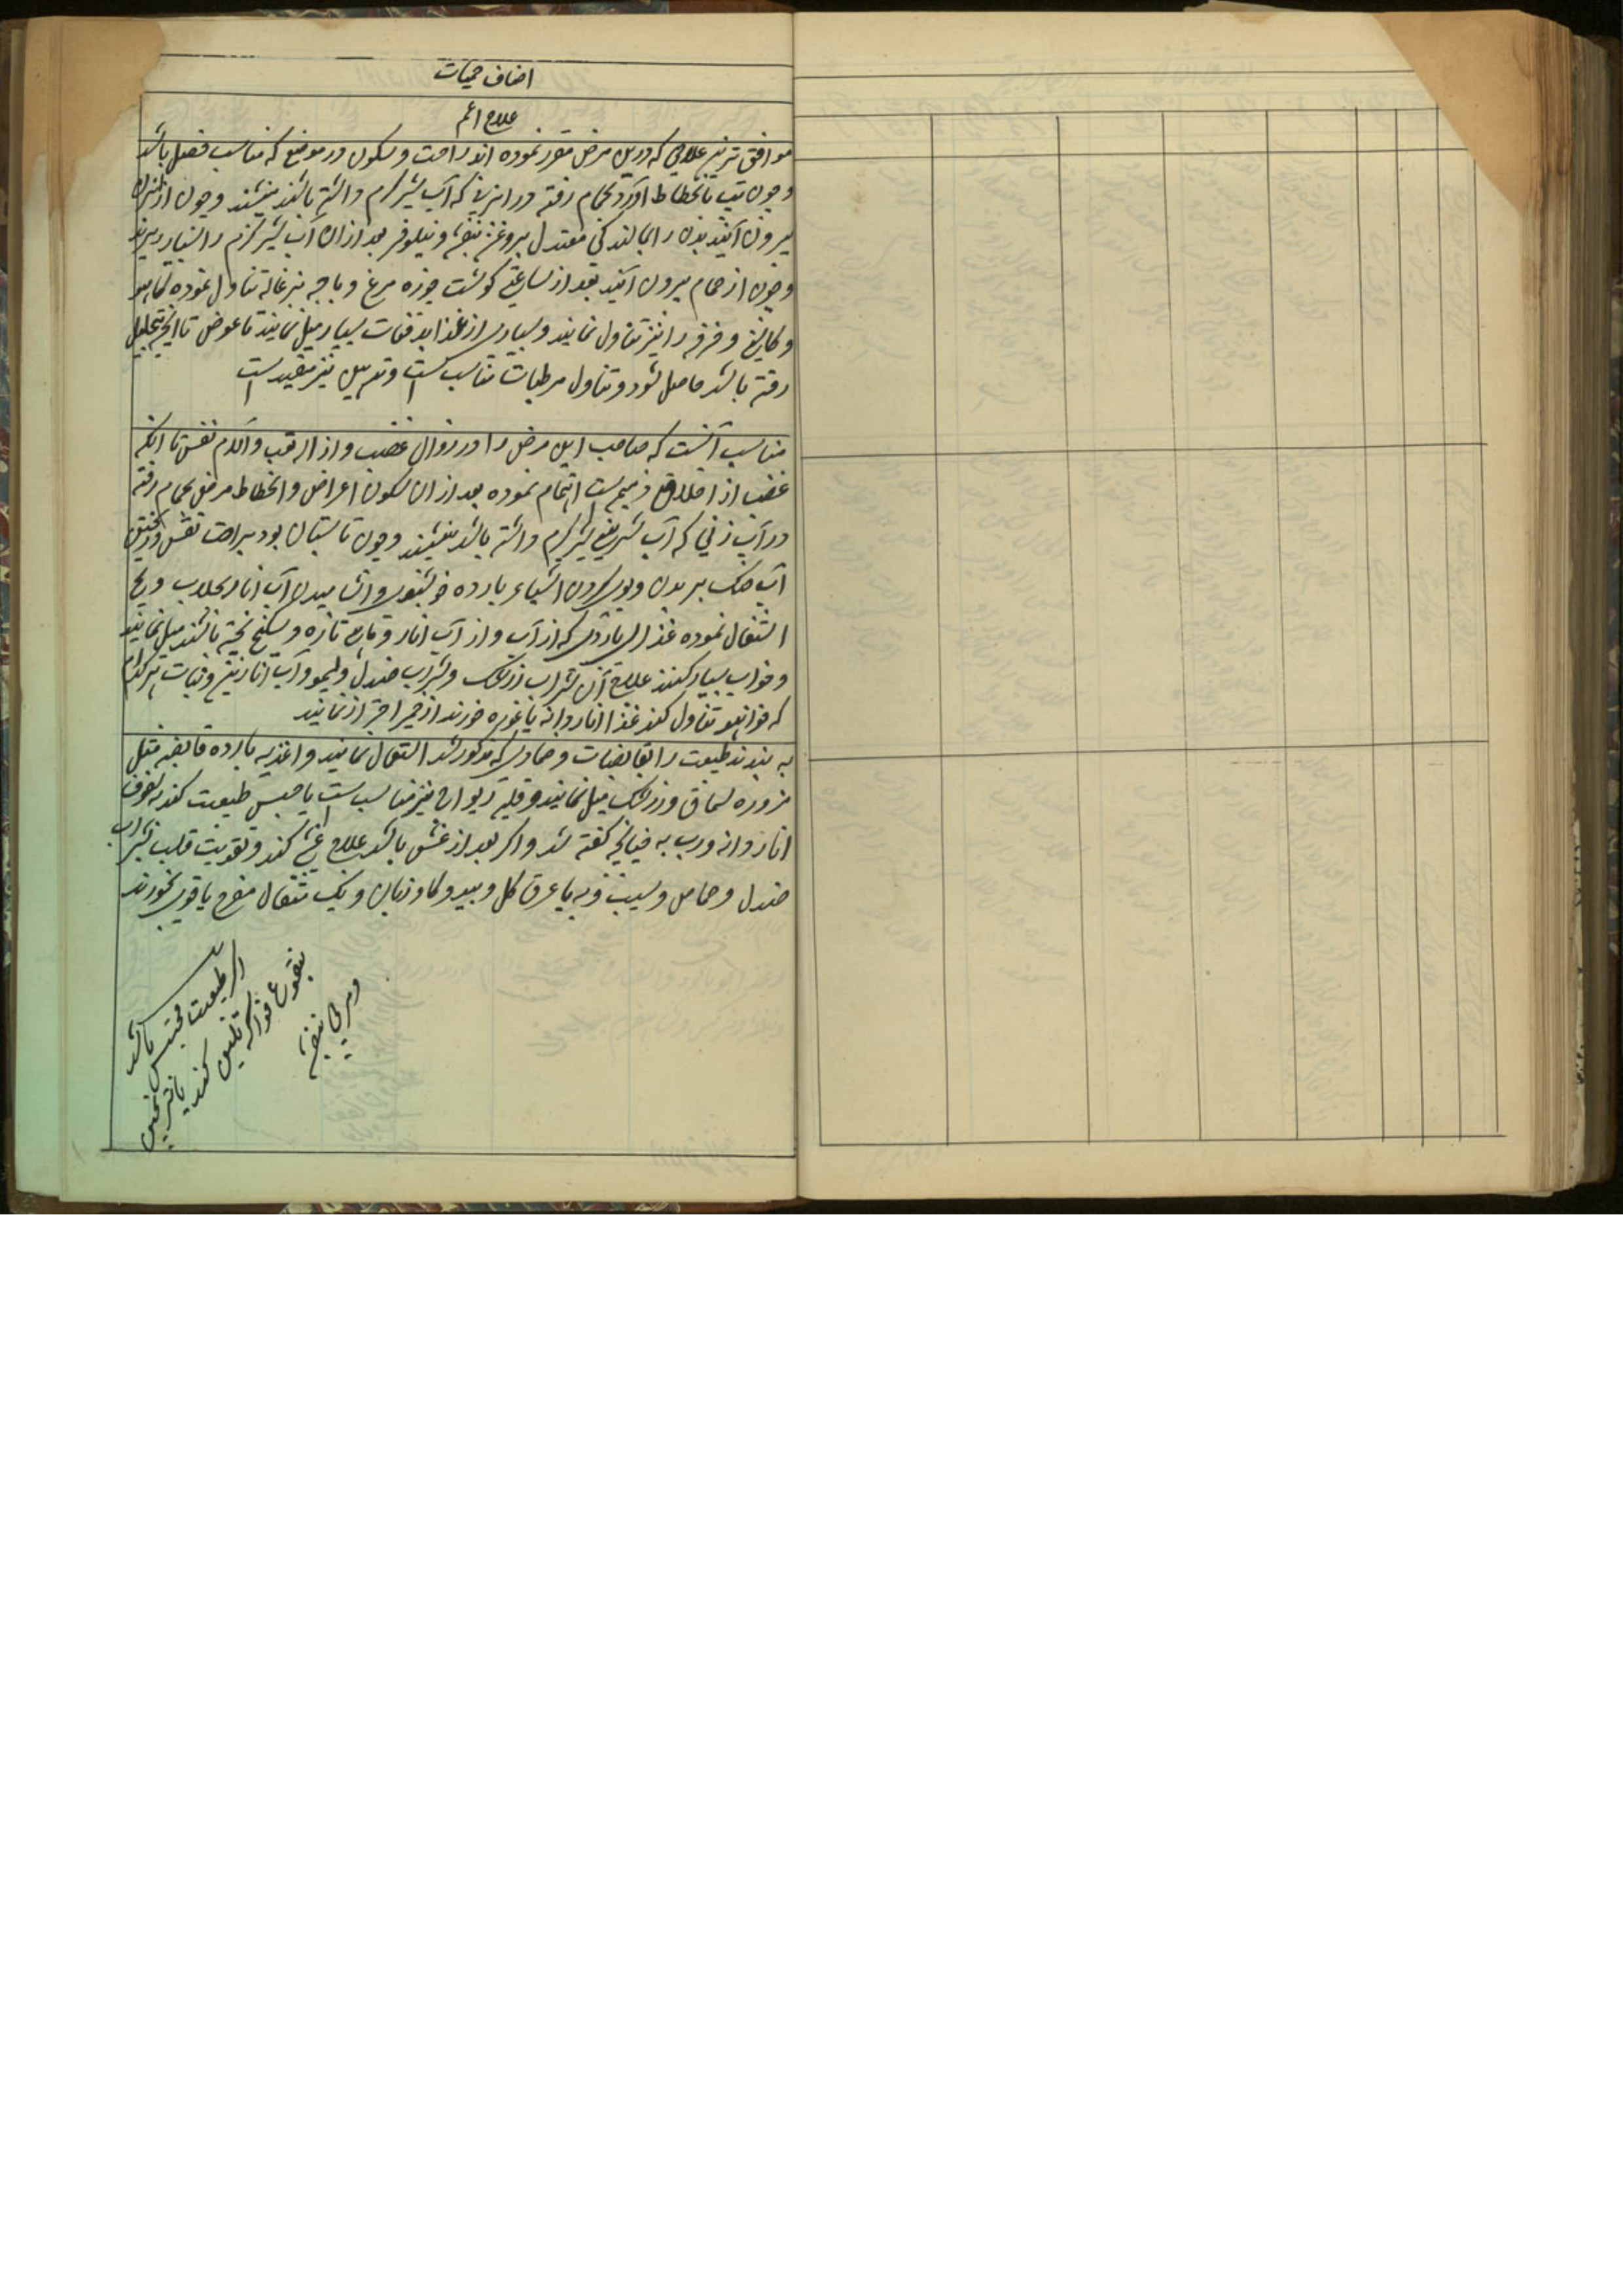 اصناف حمیات
علاج اعم
موافق ترین علاجی که درین مرض مقرر نموده اند راحت و سکون در موضع که مناسب فصل باشد
و چون تب بانحطاط آورد بحمام رفته در ابزنی که آب شیر گرم داشته باشد بنشینند و چون از
بیرون آیند بدن را بمالند کی معتدل بروغن بنفشه و نیلوفر بعد ازان آب شیر گرم را بسیار ریزند
و چون از حمام بیرون آیند بعد از ساعتی گوشت جوزه مرغ و پاچه بزغاله تناول نموده کاهو
و کاسنی و خرفه را نیز تناول نمایند و بسیاری از غذا بدفعات بسیار میل نمایند تا عوض تا آنچه بتحلیل
رفته باشد حاصل شود و تناول مرطبات مناسب است و تمریخ نیز مفید است
مناسب آنست که صاحب این مرض را در زوال غضب و ازاله تعب و آلام نفس تا آنکه
غضب از اخلاق ذمیم است اهتمام نموده بعد ازان سکون اعراض و انحطاط مرض بحمام رفته
در آب زنی که آب شیرین شیر گرم داشته باشد بنشینند و چون تابستان بود براحت نفس و ریختن
آب خنک بر بدن و بوی کردن اشیاء بارده خوشبوی و آشامیدن آب انار بجلاب و یخ
اشتغال نموده غذا که از آب و از آب انار و تازه و پخته باشند میل نمایند
و خواب بسیار کنند علاج آن شراب زرشک و شراب صندل و لیمو و آب انارین و نبات هر کدام
که خواهند تناول کند غذا اناردانه یا غوره خورند از خمر احتراز نمایند
به بندند طبیعت را بقابضات و ضمادی که مذکور شد اشتغال نمایند و اغذیه بارده قابضه مثل
مزوره سماق و زرشک میل نمایند و قلیه ریواج نیز مناسب است یا حبس طبیعت کند بسفوف
انار دانه و رب به چنانچه گفته شد و اگر بعد از غشی باشد علاج غشی کند و تقویت قلب بشراب
صندل و حماض و سیب و به با عرق گل و بید و گاو زبان و یک مثقال مفرح یاقوتی بخورند
اگر طبیعت محتبس باشد
بنقوع فواکه تلیین کنند یا ترنجبین
و مربی بنفشه